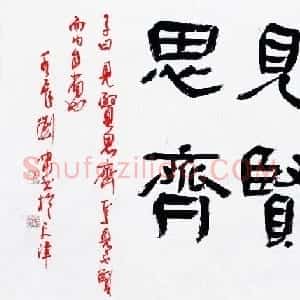 見賢
思齊
子曰見賢思齊焉見不賢
而内自省也
于天津
Shufazilia.com